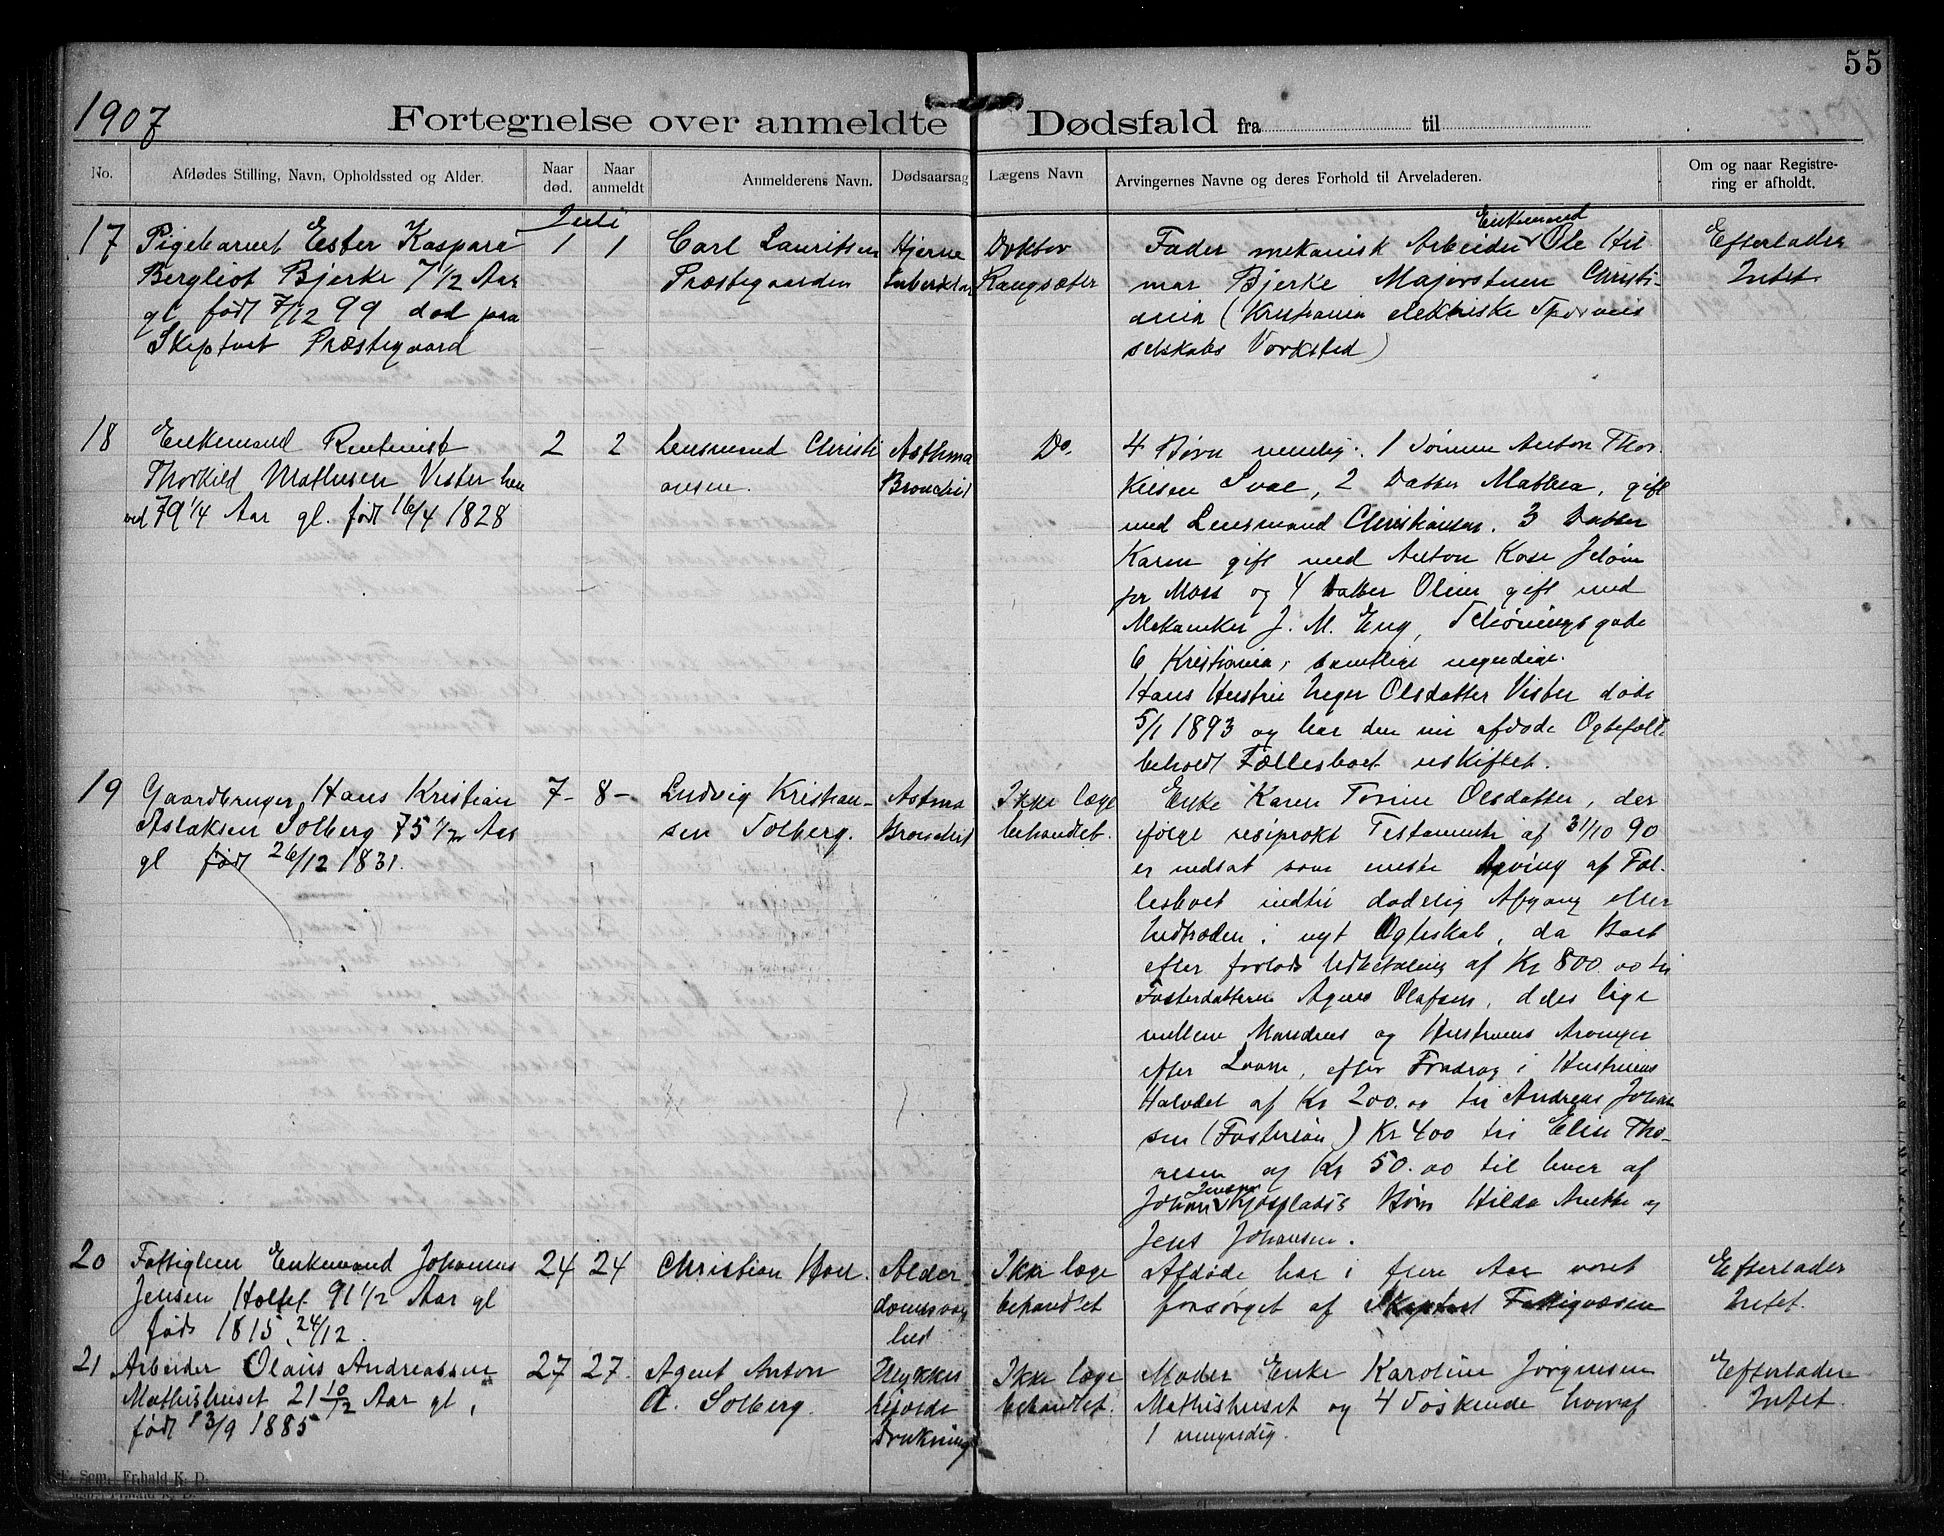 55
1907
Fortegnelse over anmeldte Dødsfald fra til
No.
Afdødes Stilling, Navn, Opholdssted og Alder.
Naar død.
Naar anmeldt
Anmelderens Navn.
Dødsaarsag
Lægens Navn
Arvingernes Navne og deres Forhold til Arveladeren.
Om og naar Registrering er afholdt.
Juli
17
Pigebarnet Ester Kaspara
Bergliot Bjerke 7 1/2 Aar
gl født 7/12 99 død paa
Skiptvet Præstegaard
1
1
Carl Lauritsen
Præstegaarden
Hjerne
Doktor
Enkemand
Fader mekanisk Arbeider Ole Hil
mar Bjerke Majorstuen Christi-
ania (Kristiania elektriske Sporveis
selskabs Verksted)
Efterlader
Intet
18
Enkemand Rentenist
Thorkild Mathisen Vister hen
ved 79 1/4 Aar gl. født 16/4 1828
2
2
Lensmand Christi
ansen.
Asthma
Bronchit
Do.
4 Børn nemlig: 1 Sønnen Anton Thor
kilsen Svae, 2 Datter Mathea, gift
med Lensmand Christiansen. 3 Datter
Karen gift med Anton Kase Jeløen
pr Moss og 4 Datter Oline gift med
Mekaniker J. M. Eng, Schøningsgade
6 Kristiania, samtlige myndige.
Hans Hustru Inger Olsdatter Vister døde
5/1 1893 og har den nu afdøde
beholdt Fællesboet uskiftet.
19
Gaardbruger Hans Kristian
Aslaksen Solberg 75 1/2 Aar
gl født 26/12 1831.
7-
8-
Ludvig Kristian-
sen Solberg.
Astma
Bronchit
Ikke læge
behandlet.
Enke Karen Torine Olsdatter, der
følge resiprokt Testamente af 31/10 90
er indsat som eneste Arving af Fæl-
lesboet indtil dødelig Afgang eller
Indtræden i nyt Ægteskab, da Boet
efter forlods Udbetaling af Kr 800.00 til
Fosterdatteren Agnes Olafsen, deles lige
mellem Mandens og Hustruens Arvinger
efter Loven, efter Fradrag i Hustruens
Halvdel af Kr 200.00 til Andreas Johan
sen (Fostersøn) Kr 400 til Elise Tho-
resen og Kr 50.00 til hver af
Jensen
Johan Børn Hilda Anette og
Jens Johansen.
20
Fattiglem Enkemand Johannes
Jensen Holtet 91 1/2 Aar gl
født 1815 24/12.
24
24
Christian Hoel.
Alder
domssvag
hed
Ikke læge
behandlet
Afdøde har i flere Aar været
forsørget af Skiptvet Fattigvæsen
Efterlader
Intet.
21
Arbeider Olaus Andreassen
Mathishuset 21 10/12 Aar gl,
født 13/9 1885
27
27.
Agent Anton
A. Solberg.
Ulykkes
tilfælde
Drukning
Ikke læge
behandlet.
Moder Enke Karoline Jørgensen
Mathishuset og 4 Søskende hvoraf
1 umyndig.
Efterlader
Intet.